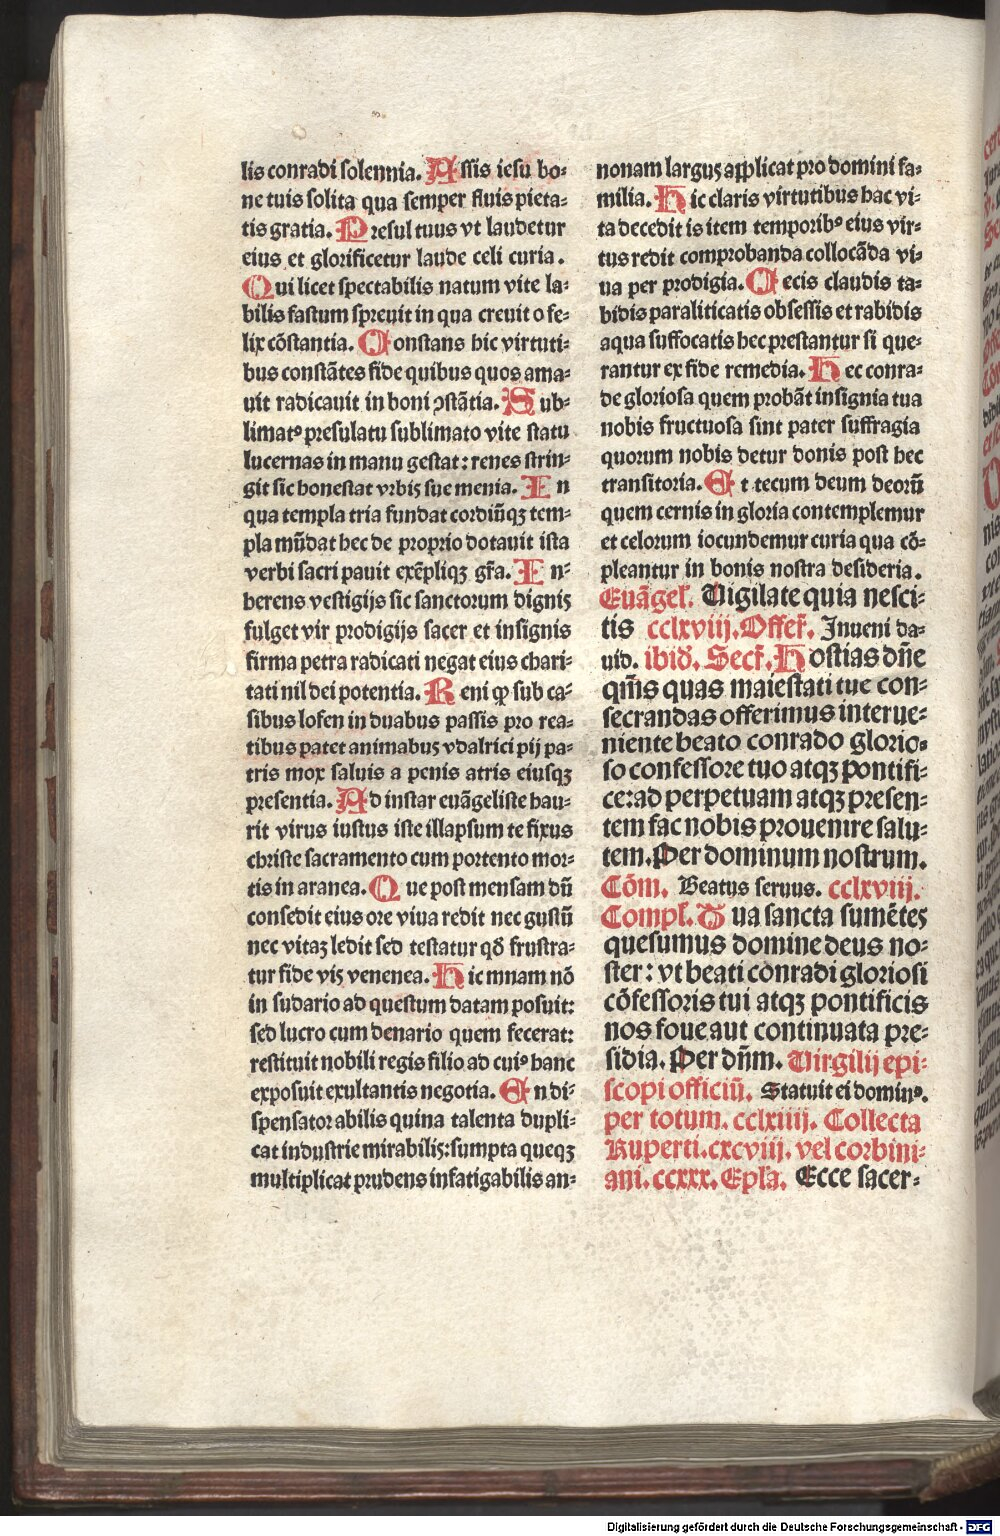 lis conradi solennia. Assis iesu bo⸗
ne tuis solita qua semper fluis pieta⸗
tis gratia. Presul tuus vt laudetur
eius et glorificetur laude celi curia.
Qui licet spectabilis natum vite la⸗
bilis fastum spreuit in qua creuit o fe⸗
lix cõstantia. Constans hic virtuti⸗
bus constãtes fide quibus quos ama⸗
uit radicauit in boni ꝯstãtia. Sub⸗
limatꝰ presulatu sublimato vite statu
lucernas in manu gestat: renes strin⸗
git sic honestat vrbiꝫ sue menia. In
qua templa tria fundat cordiũqꝫ tem⸗
pla mũdat hec de proprio dotauit ista
verbi sacri pauit exẽpliqꝫ gr̃a. In⸗
herens vestigijs sic sanctorum digniꝫ
fulget vir prodigijs sacer et insignis
firma petra radicati negat eius chari⸗
tati nil dei potentia. Reni ꝙ sub ca⸗
sibus losen in duabus passis pro rea⸗
tibus patet animabuꝫ vdalrici pij pa⸗
tris mox saluis a penis atris eiusqꝫ
presentia. Ad instar euãgeliste hau⸗
rit virus iustus iste illapsum te fixus
christe sacramento cum portento mor⸗
tis in aranea. Que post mensam dũ
consedit eius ore viua redit nec gustũ
nec vitaꝫ ledit sed testatur qđ frustra⸗
tur fide viꝫ venenea. Hic mnam nõ
in sudario ad questum datam posuit:
sed lucro cum denario quem fecerat:
restituit nobili regis filio ad cuiꝰ hanc
exposuit exultantis negotia. En di⸗
spensator abilis quina talenta dupli⸗
cat industrie mirabiliꝫ: sumpta queqꝫ
multiplicat prudens infatigabilis an⸗
nonam larguꝫ applicat pro domini fa⸗
milia. Hic claris virtutibus hac vi⸗
ta decedit is item temporibꝰ eius vir⸗
tus redit comprobanda collocãda vi⸗
ua per prodigia. Cecis claudis ta⸗
bidis paraliticatis obsessis et rabidis
aqua suffocatis hec prestantur si que⸗
rantur ex fide remedia. Hec conra⸗
de gloriosa quem probãt insignia tua
nobis fructuosa sint pater suffragia
quorum nobis detur donis post hec
transitoria. Et tecum deum deorũ
quem cernis in gloria contemplemur
et celorum iocundemur curia qua cõ⸗
pleantur in bonis nostra desideria.
Euãgel̃. Uigilate quia nesci⸗
tis cclxviij. Offer̃. Inueni da⸗
uid. ibid̃. Secr̃. Hostias dñe
qm̃s quas maiestati tue con⸗
secrandas offerimus interue⸗
niente beato conrado glorio⸗
so confessore tuo atqꝫ pontifi⸗
ce: ad perpetuam atqꝫ presen⸗
tem fac nobis prouenire salu⸗
tem. Per dominum nostrum.
Cõm. Beatus seruus. cclxviij.
Compl̃. Tua sancta sumẽteꝫ
quesumus domine deus no⸗
ster: vt beati conradi gloriosi
cõfessoris tui atqꝫ pontificis
nos foueaut continuata pre⸗
sidia. Per dñm. Uirgilij epi⸗
scopi officiũ. Statuit ei dominꝰ.
per totum. cclxiiij. Collecta
Ruperti. cxcviij. vel corbini⸗
ani. ccxxx. Epl̃a. Ecce sacer⸗
Digitalisierung gefördert durch die Deutsche Forschungsgemeinschaft - DFG